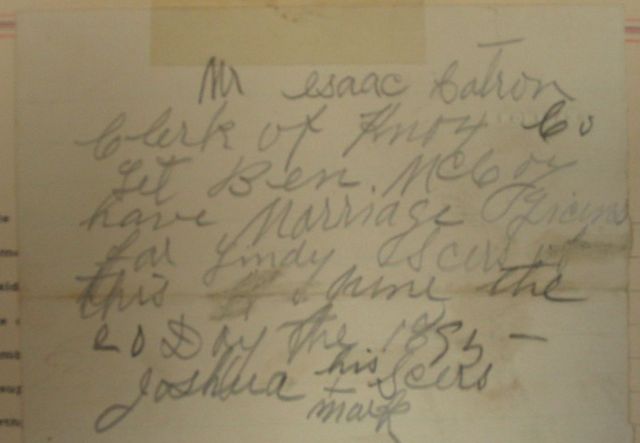 Mr Esaac Catron
Clerk of Knox Co
Let Ben. McCoy
have Marriage
for Lindy Scers
this June the
20 Day the 1895 —
Joshua his Scers
mark